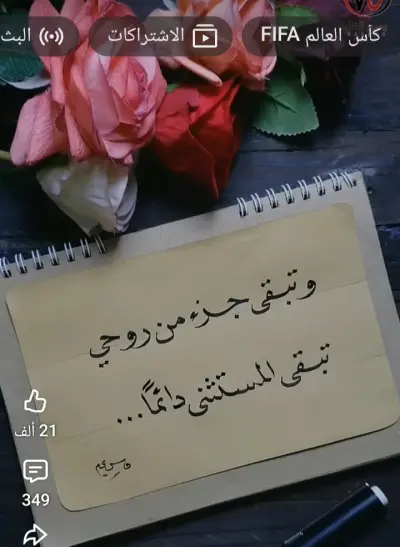 كأس العالم FIFA
الاشتراكات
البث
وتبقى جزء من روحي
تبقى المستثنى دائمًا...
21 ألف
349